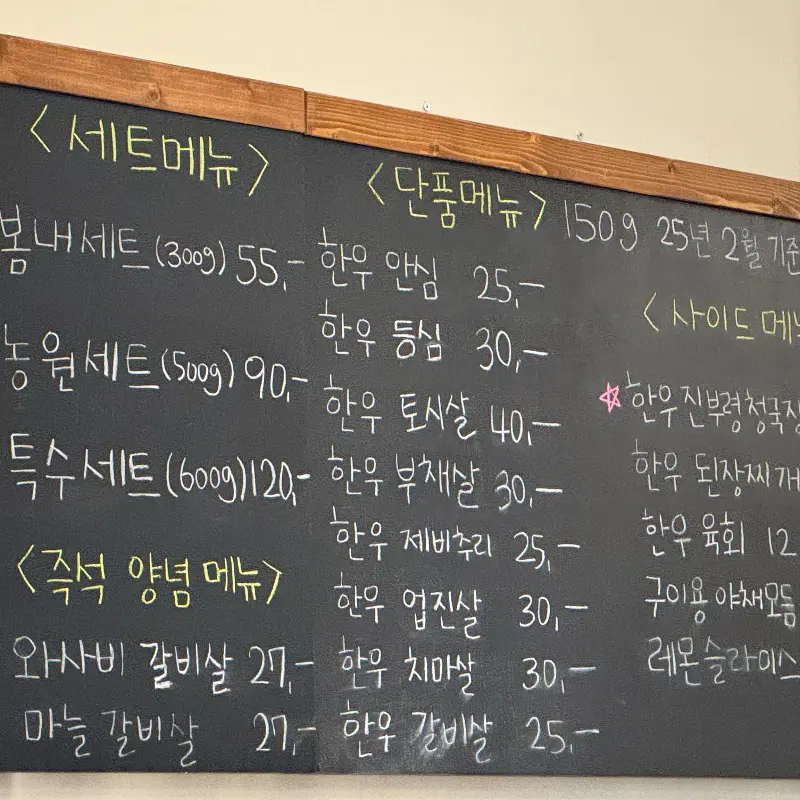 <세트메뉴>
봄내세트(300g) 55,-
농원세트(500g) 90,-
특수세트(600g) 120,-
<즉석 양념 메뉴>
와사비 갈비살 27,-
마늘 갈비살 27,-
<단품메뉴> 150g 25년 2월 기준
한우 안심 25,-
한우 등심 30,-
한우 토시살 40,-
한우 부채살 30,-
한우 제비추리 25,-
한우 업진살 30,-
한우 치마살 30,-
한우 갈비살 25,-
<사이드 메뉴
한우 진부령청국장
한우 된장찌개
한우 육회 12
구이용 야채모둠
레몬슬라이스